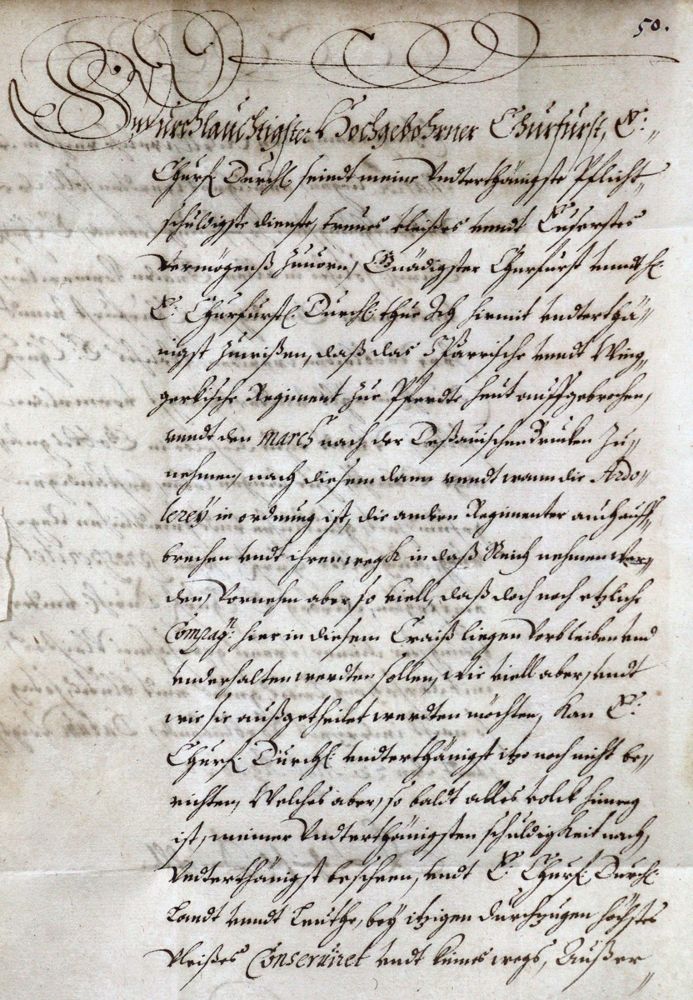 50.
Durchlauchtigster Hochgebohrner Churfürst, E:
Churf. Durchl. seindt meine Underthänigste Pflicht„
schüldigste dienste, treues fleißes undt Euserstes
Vermögenß Zuuorn, Gnädigster Churfürst unndt H.
E: Churfürstl. Durchl. thue Ich hirmit undterthä„
nigst Zuwißen, daß das Sparrische undt Wing„
gerkische Regiment zur Pferdte heut auffgebrochen,
undt den march nach der Deßauischen Brucken Zu„
nehmen, nach diesem dann undt wann die Ardo„
lerey in ordnung ist, die andern Regimenter auch auff„
brechen undt ihren wegk in daß Reich nehmen wer„
den, Vornehm aber so viell, daß doch noch etzliche
Compag: hier in diesem Craiß liegen Vorbleiben und
underhalten werdten sollen, wie viell aber, undt
wie sie außgetheilet werdten möchten, kan E:
Churf. Durchl. undterthänigst itzo noch nicht be„
richten, Welches aber, so baldt alles volck hinweg
ist, meiner Undterthänigsten schuldigkeit nach,
Undterthänigst beschehen, undt E. Churf. Durchl.
Landt undt Leuthe, bey itzigen durchzugen höchstes
fleißes Conseruiret undt keines wegs, Außer„